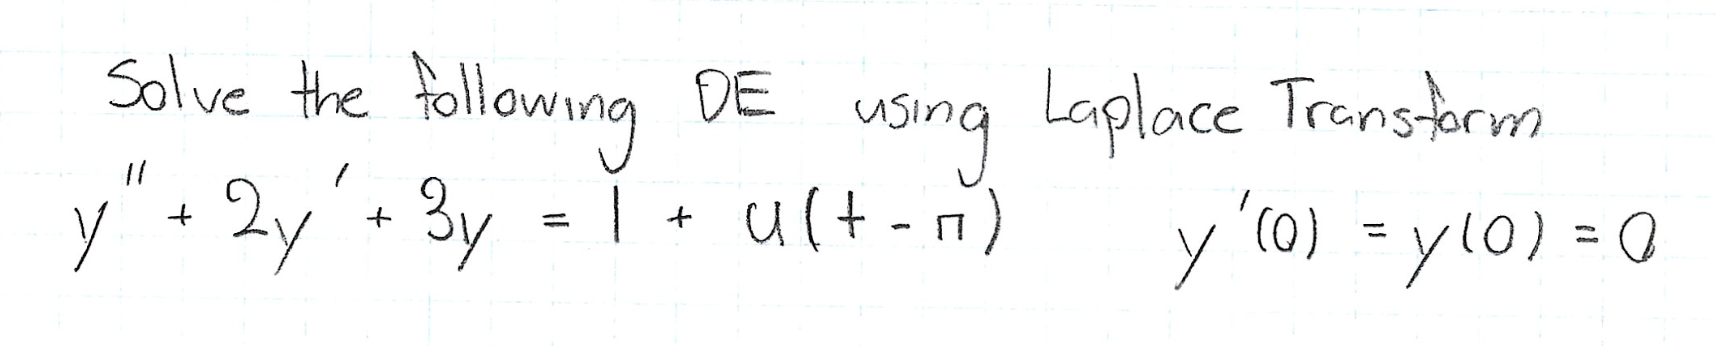 Solve the following DE using Laplace Transform
y'' + 2y' + 3y = 1 + u(t - π) y'(0) = y(0) = 0